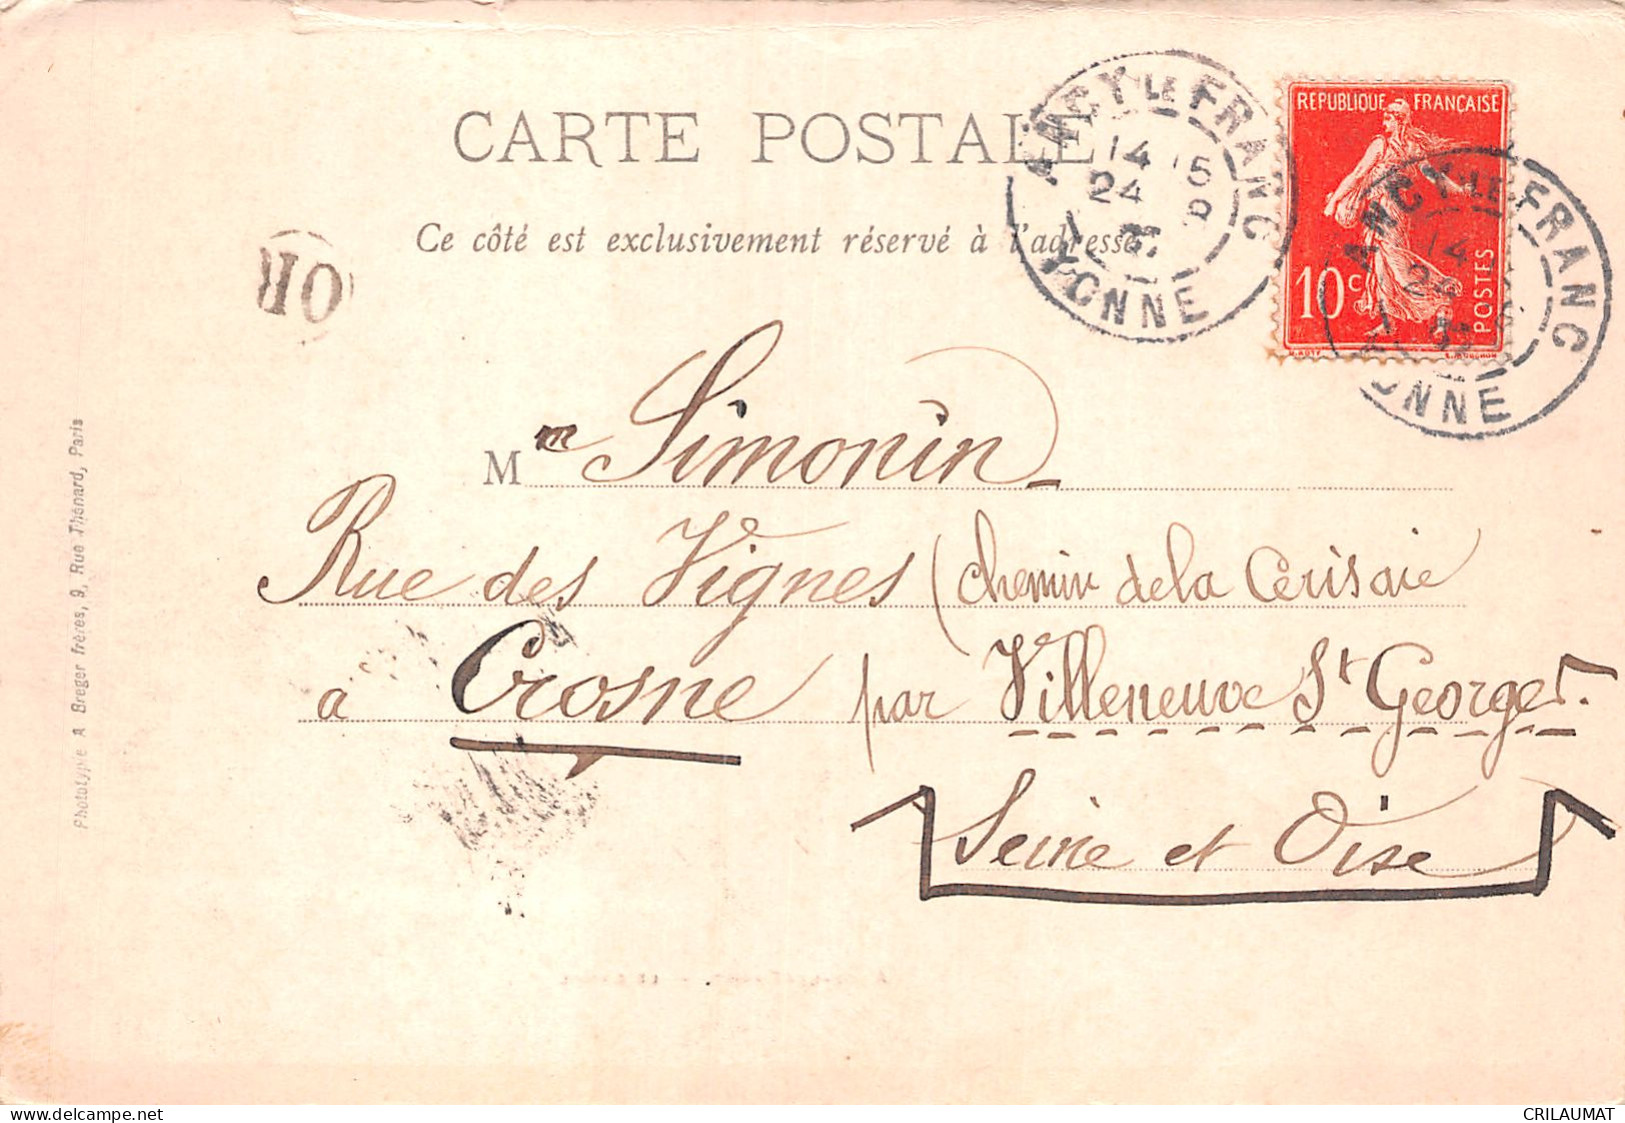 CARTE POSTALE
Ce côté est exclusivement réservé à l'adresse
ANCY LE FRANC
14 15
24
YONNE
REPUBLIQUE FRANÇAISE
10c
POSTES
ANCY LE FRANC
14
24
YONNE
OR
Mm Simonin
Rue des Vignes (chemin de la Cerisaie
à Crosne par Villeneuve St Georges.
Seine et Oise
Phototypie A Breger frères, 9, Rue Thénard, Paris
CRILAUMAT